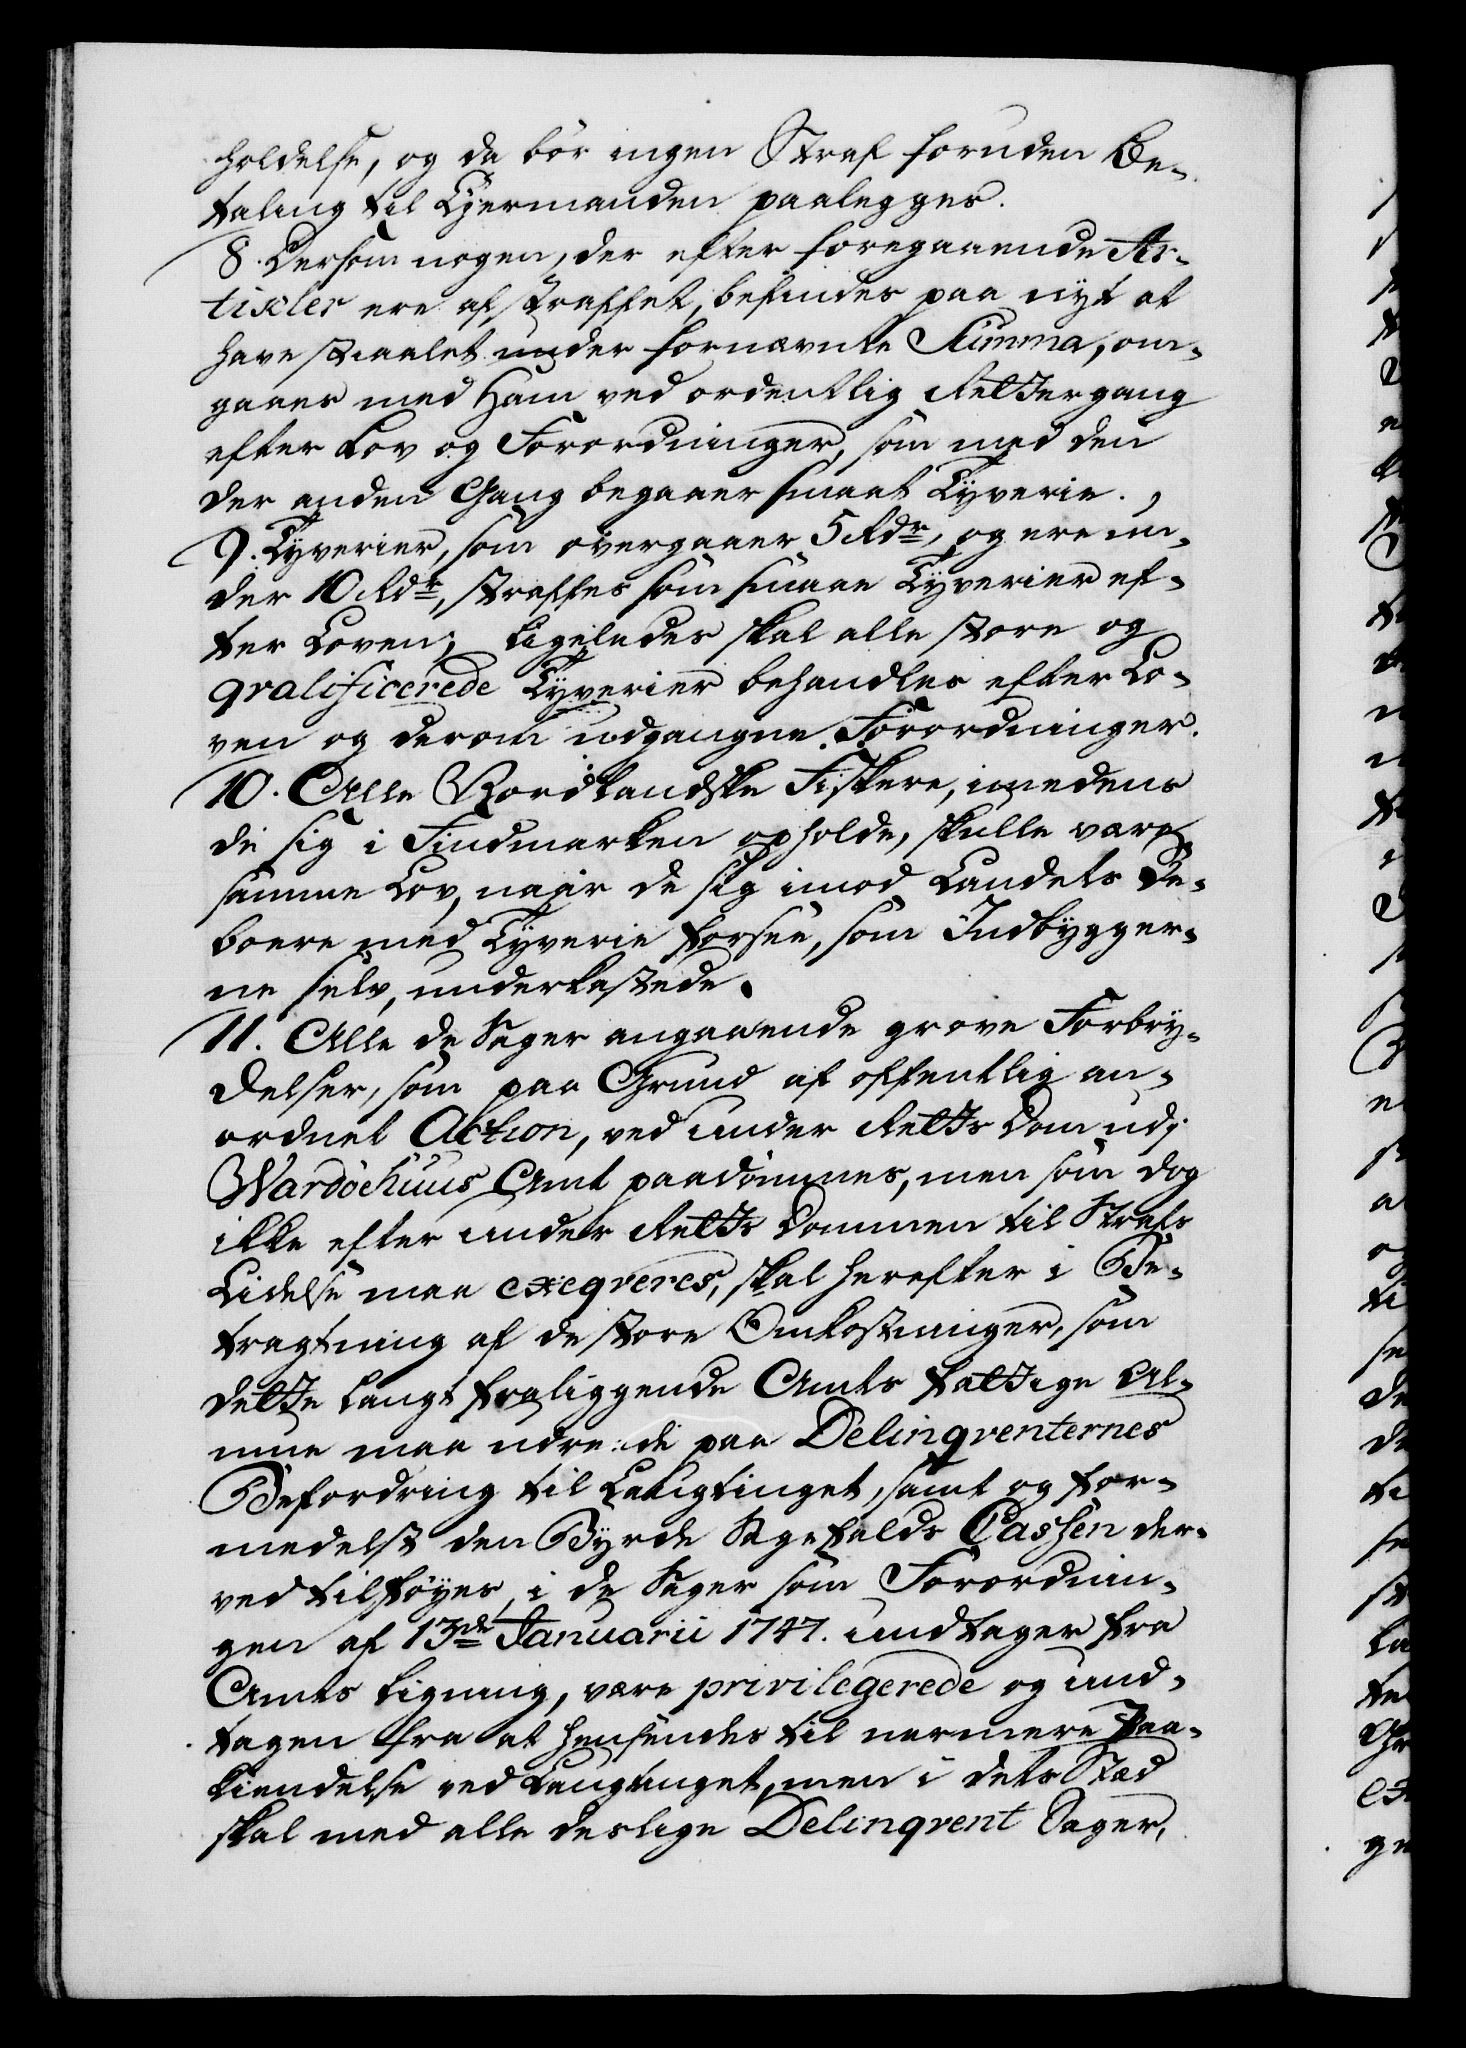 holdelse, og da bör ingen Straf foruden Be-
taling til Ejermanden paalegges.
8. Dersom nogen, der efter foregaaende Ar-
tikler ere afstraffet, befindes paa nyt at
have stiaalet under fornævnte Summa, om-
gaaes med Ham ved ordentlig Rettergang
efter Lov og Forordninger, som med den
der anden Gang begaaer smaat Tyverie.
9. Tyverier, som overgaaer 5 Rdr, og ere un-
der 10 Rdr, straffes som smaae Tyverier ef-
ter Loven; Ligeledes skal alle store og
qvalificerede Tyverier behandles efter Lo-
ven og derom udgangne Forordninger.
10. Alle Nordlandske Fiskere, imedens
de sig i Findmarken opholde, skulle være
samme Lov, naar de sig imod Landets Be-
boere med Tyverie forsee, som Indbygger-
ne selv, underkastede.
11. Alle de Sager angaaende grove Forbry-
delser, som paa Grund af offentlig an-
ordnet Action, ved under Retts Dom udj
Wardöehuus Amt paadömmes, men som dog
ikke efter under Retts Dommen til Strafs
Lidelse maa exeqveres, skal herefter i Be-
tragtning af de store Omkostninger, som
dette langt fraliggende Amts fattige Al-
mue maa udrede paa Delinqventernes
Befordring til Laugtinget, samt og for-
medelst den Byrde Sagefalds Cassen der-
ved tilföyes, i de Sager som Forordnin-
gen af 13de Januarii 1747. undtager fra
Amts Ligning, være privilegerede og und-
tagen fra at hensendes til nærmere Paa-
kiendelse ved Laugtinget, men i dets Stæd
skal med alle deslige Delinqvent Sager,